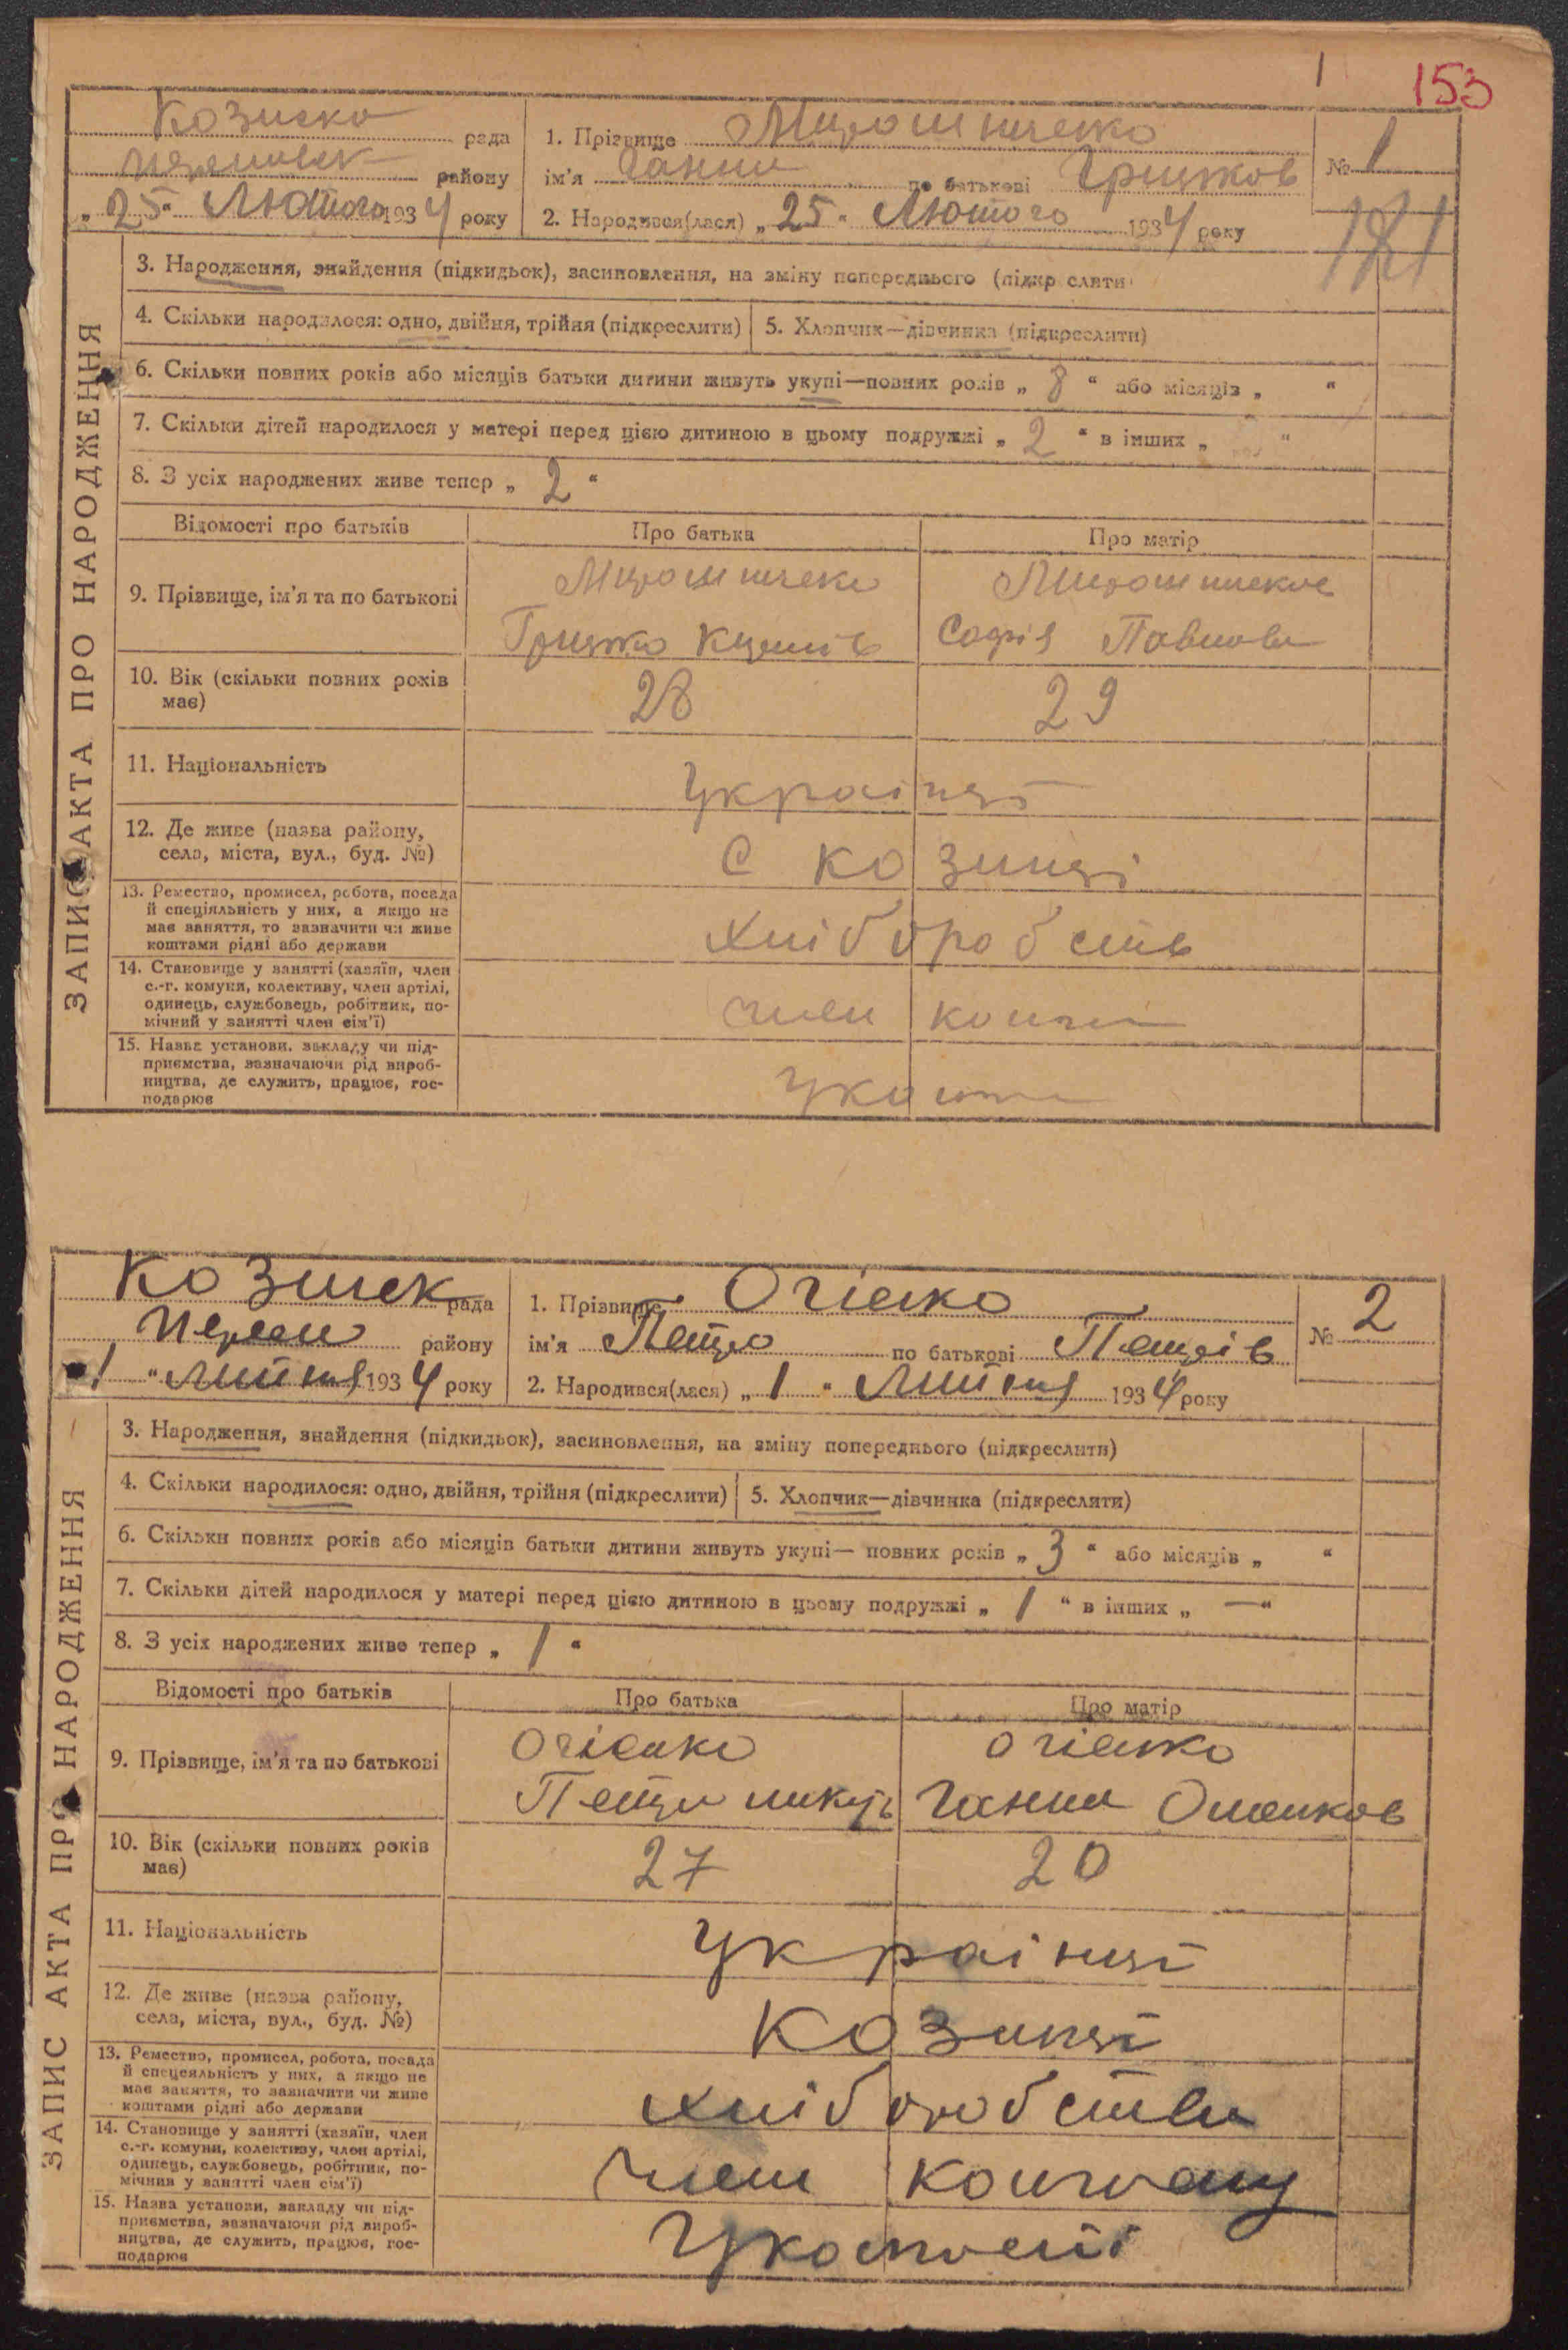 1 153
рада
району
„25“ Лютого 1934 року
1. Прізвище Мирошниченко
ім'я Ганна по батькові Грицьков
2. Народився(лася) „25“ Лютого 1934 року
№ 1
ЗАПИС АКТА ПРО НАРОДЖЕННЯ
3. Народження, знайдення (підкидьок), засиновлення, на зміну попереднього (підкреслити
4. Скільки народилося: одно, двійня, трійня (підкреслити)
5. Хлопчик—дівчинка (підкреслити)
6. Скільки повних років або місяців батьки дитини живуть укупі—повних років „8“ або місяців „ “
7. Скільки дітей народилося у матері перед цією дитиною в цьому подружжі „2“ в інших „ “
8. З усіх народжених живе тепер „2“
Відомості про батьків
Про батька
Про матір
9. Прізвище, ім'я та по батькові
Грицько
Софія Павлова
10. Вік (скільки повних років
має)
28
29
11. Національність
Україн
12. Де живе (назва району,
села, міста, вул., буд. №)
С Козинці
13. Ремество, промисел, робота, посада
й спеціяльність у них, а якщо не
має заняття, то зазначити чи живе
коштами рідні або держави
хліборобств
14. Становище у занятті (хазяїн, член
с.-г. комуни, колективу, член артілі,
одинець, службовець, робітник, по-
мічний у занятті член сім'ї)
член
15. Назва установи, закладу чи під-
приємства, зазначаючи рід вироб-
ництва, де служить, працює, гос-
подарює
рада
району
„1“ Липня 1934 року
1. Прізвище Огієнко
ім'я Петро по батькові Петрів
2. Народився(лася) „1“ Липня 1934 року
№ 2
ЗАПИС АКТА ПРО НАРОДЖЕННЯ
3. Народження, знайдення (підкидьок), засиновлення, на зміну попереднього (підкреслити)
4. Скільки народилося: одно, двійня, трійня (підкреслити)
5. Хлопчик—дівчинка (підкреслити)
6. Скільки повних років або місяців батьки дитини живуть укупі— повних років „3“ або місяців „ “
7. Скільки дітей народилося у матері перед цією дитиною в цьому подружжі „1“ в інших „—“
8. З усіх народжених живе тепер „1“
Відомості про батьків
Про батька
Про матір
9. Прізвище, ім'я та по батькові
Огієнко
Петро
Огієнко
Ганна
10. Вік (скільки повних років
має)
27
20
11. Національність
Україн
12. Де живе (назва району,
села, міста, вул., буд. №)
Козинці
13. Ремество, промисел, робота, посада
й спецеяльність у них, а якщо не
має заняття, то зазначити чи живе
коштами рідні або держави
хліборобства
14. Становище у занятті (хазяїн, член
с.-г. комуни, колективу, член артілі,
одинець, службовець, робітник, по-
мічния у занятті член сім'ї)
член колгоспу
15. Назва установи, закладу чи під-
приємства, зазначаючи рід вироб-
ництва, де служить, працює, гос-
подарює